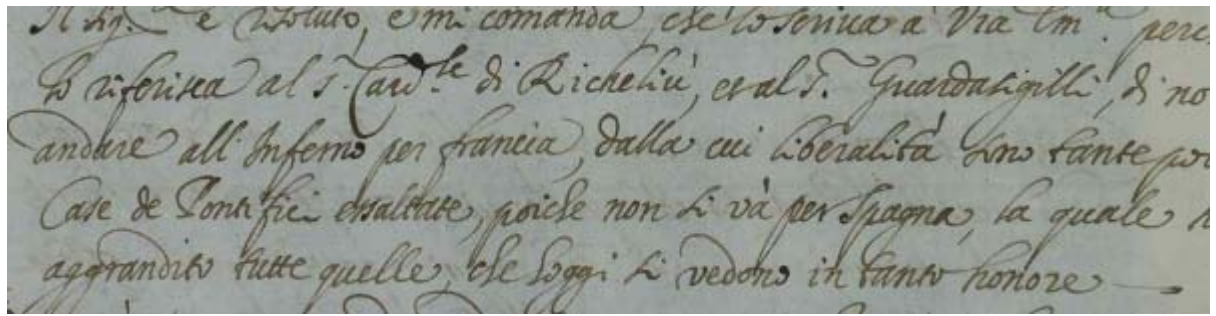 Il Sig.re è risoluto, e mi comanda, che lo scriva a Vra Em.a perc
lo riferisca al S. Card.le di Richeliù, et al S. Guardasigilli, di no
andare all'Inferno per francia, dalla cui liberalità sono tante po
Case de Pontifici essaltate, poiche non si và per Spagna, la quale
aggrandito tutte quelle, che hoggi si vedono in tanto honore